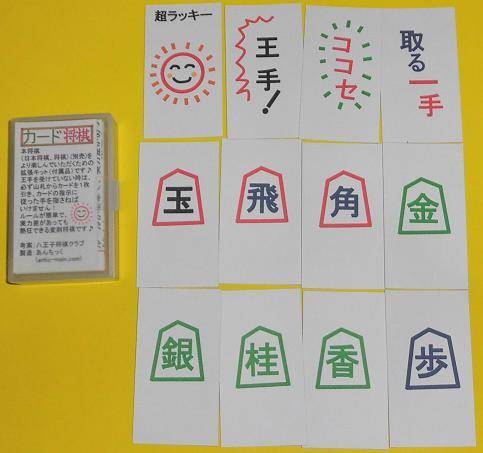 カード将棋
本将棋
（日本将棋、将棋）（別売）を
より楽しんでいただくための
拡張キット（付属品）です♪
王手を受けていない時は、
必ず山札からカードを1枚
引き、カードの指示に
従った手を指さねば
いけません！
ルールが簡単で、
実力差があっても
熱狂できる変則将棋です♪
考案：八王子将棋クラブ
製造：あんちっく
超ラッキー
王手！
ココセ
取る一手
玉
飛
角
金
銀
桂
香
歩